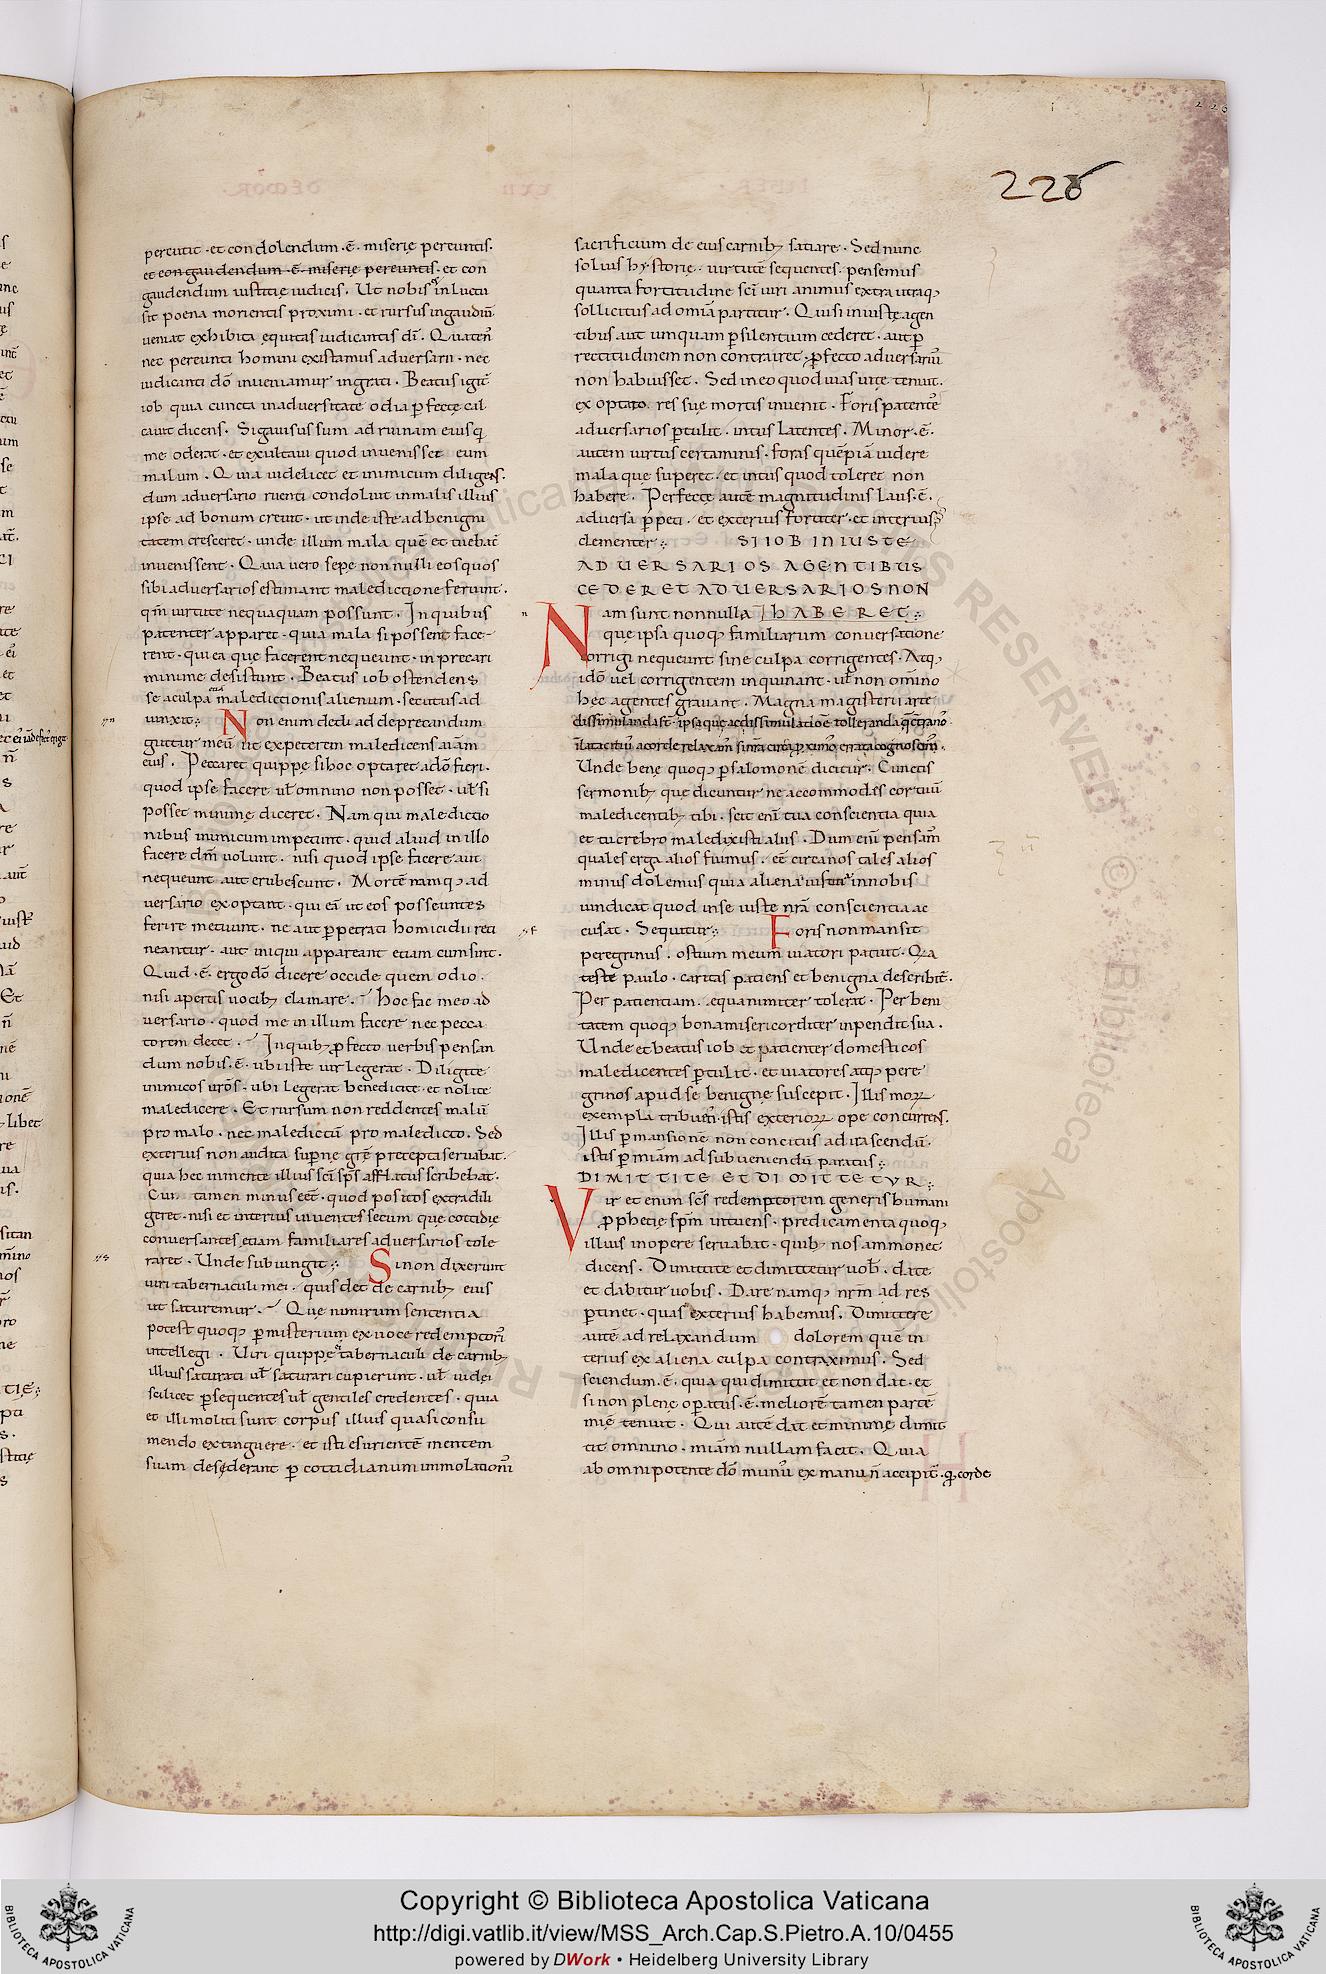 226
percutit · et condolendum · ē · miserię pereuntis.
et congaudendum · ē · miserię pereuntis · et con
gaudendum iustitię iudicis . Ut nobis in luctu
sit poena morientis proximi · et rursus ingaudiū
ueniat exhibita equitas iudicantis dī . Quaten̄
nec pereunti homini existamus adversarii · nec
iudicanti dō inveniamur ingrati . Beatus igit̄
iob quia cuncta inadversitate odia p̄fecte cal
cauit dicens . Sigavisus sum ad ruinam eius q̄
me oderat · et exultavi quod invenisset eum
malum . Quia videlicet et inimicum diligens.
dum adversario ruenti condoluit inmalis illius
ipse ad bonum crevit · ut inde iste ad benigni
tatem cresceret · unde illum mala quē et tuebat̄
invenissent . Quia vero sepe non nulli eos quos
sibi adversarios estimant maledictione feriunt .
qm̄ virtute nequaquam possunt . In quibus
patenter apparet · quia mala si possent face
rent · qui ea que facerent nequeunt · inprecari
minime desistunt . Beatus iob ostendens
se aculpa etiā maledictionis alienum · secutus ad
iunxit : Non enim dedi ad deprecandum
guttur meū ut expeterem maledicens aīam
eius . Peccaret quippe si hoc optaret adō fieri .
quod ipse facere ul̄ omnino non posset · ul̄ si
posset minime diceret . Nam qui maledictio
nibus inimicum impetunt · quid aliud in illo
facere dm̄ volunt · nisi quod ipse facere aut
nequeunt aut erubescunt . Mortē namq; ad
versario exoptant · qui eā ut eos posse untes
ferire metuunt · ne aut p̄petrati homicidii rei
neantur · aut iniqui appareant etiam cum sint .
Quid · ē · ergo dō dicere occide quem odio .
nisi apertis vocib; clamare . Hoc fac meo ad
versario · quod me in illum facere nec pecca
torem decet . In quib; p̄fecto verbis pensan
dum nobis · ē · ubi iste vir legerat . Diligite
inimicos vrōs · ubi legerat benedicite · et nolite
maledicere . Et rursum non reddentes malū
pro malo · nec maledictū pro maledicto . Sed
exterius non audita sup̄nę grē precepta servabat .
quia hec inmente illius scī sp̄s afflatus scribebat .
Cui tamen minus eēt · quod positos extra dili
geret · nisi et interius inventes secum que cottidię
conversantes etiam familiares adversarios tole
raret . Unde subiungit : Si non dixerunt
viri tabernaculi mei · quis det de carnib; eius
ut saturemur . Quę nimirum sententia
potest quoq; p̄ misterium ex voce redemptori᷒
intellegi . Viri quippe tabernaculi de carnib;
illius saturati ul̄ saturari cupierunt · ul̄ iudei
scilicet p̄sequentes ul̄ gentiles credentes · quia
et illi moliti sunt corpus illius quasi consu
mendo extinguere · et isti esurientē mentem
suam desęderant p̄ cottidianum immolationi᷒
sacrificium de eius carnib; satiare . Sed nunc
solius hystorię · virtutē sequentes · pensemus
quanta fortitudine scī viri animus extra utraq;
sollicitus ad omīa partitur . Qui si iniuste agen
tibus aut umquam p̄ silentium cederet · aut p̄
rectitudinem non contrairet · p̄fecto adversariū
non habuisset . Sed in eo quod vias vitę tenuit .
ex optato res sue mortis invenit . Foris patentē
adversarios p̄tulit . intus latentes . Minor · ē ·
autem virtus certaminis · foras quēpiā videre
mala que superet · et intus quod toleret non
habere . Perfectę autē magnitudinis laus · ē ·
adversa p̄peti · et exterius fortiter · et interius
clementer : SI IOB INIUSTE
ADUERSARIOS AGENTIBUS
CEDERET ADUERSARIOS NON
Nam sunt nonnulla HABERET :
que ipsa quoq; familiarum conversatione
corrigi nequeunt sine culpa corrigentes . Atq;
idō vel corrigentem inquinant · ul̄ non omīno
hec agentes gravant . Magna magisterii arte
Unde bene quoq; p̄ salomonē dicitur . Cunctis
sermonib; que dicuntur ne accommodes cor tuū
maledicentib; tibi . scit enī tua conscientia quia
et tu crebro maledixisti aliis . Dum eni᷒ pensam᷒
quales erga alios fuimus · eē circa nos tales alios
minus dolemus quia aliena iustitia innobis
vindicat quod in se iuste nrā conscientia ac
cusat . Sequitur : Foris non mansit
peregrinus . ostium meum viatori patuit . Q̄a
teste paulo . caritas patiens et benigna describit̄ .
Per patientiam . equanimiter tolerat . Per beni
tatem quoq; bona misericorditer inpendit sua .
Unde et beatus iob et patienter domesticos
maledicentes p̄tulit . et viatores atq; pere
grinos apud se benigne suscepit . Illis moꝝ
exempla tribuit · istis exterioꝝ ope concurrens .
Illis p̄ mansionē non concitus ad irascendū .
istis p̄ mīam ad subveniendū paratus :
DIMITTITE ET DIMITTETUR :
Vir et enim scs̄ redemptorem generis humani
p̄ p̄phetię sp̄m intuens · predicamenta quoq;
illius in opere servabat · quib; nos ammonet
dicens . Dimittite et dimittetur vob̄ . date
et dabitur vobis . Dare namq; nrm̄ ad res
p̄tinet · quas exterius habemus . Dimittere
autē ad relaxandum dolorem quē in
terius ex aliena culpa contraximus . Sed
sciendum · ē · quia qui dimittit et non dat · et
si non plene op̄atus · ē · meliorē tamen partē
mīę tenuit . Qui autē dat et minime dimit
tit omnino · mīam nullam facit . Quia
ab omnipotente dō munu᷒ ex manu n̄ accipit̄ · q̄ corde
Copyright © Biblioteca Apostolica Vaticana
http://digi.vatlib.it/view/MSS_Arch.Cap.S.Pietro.A.10/0455
powered by DWork • Heidelberg University Library